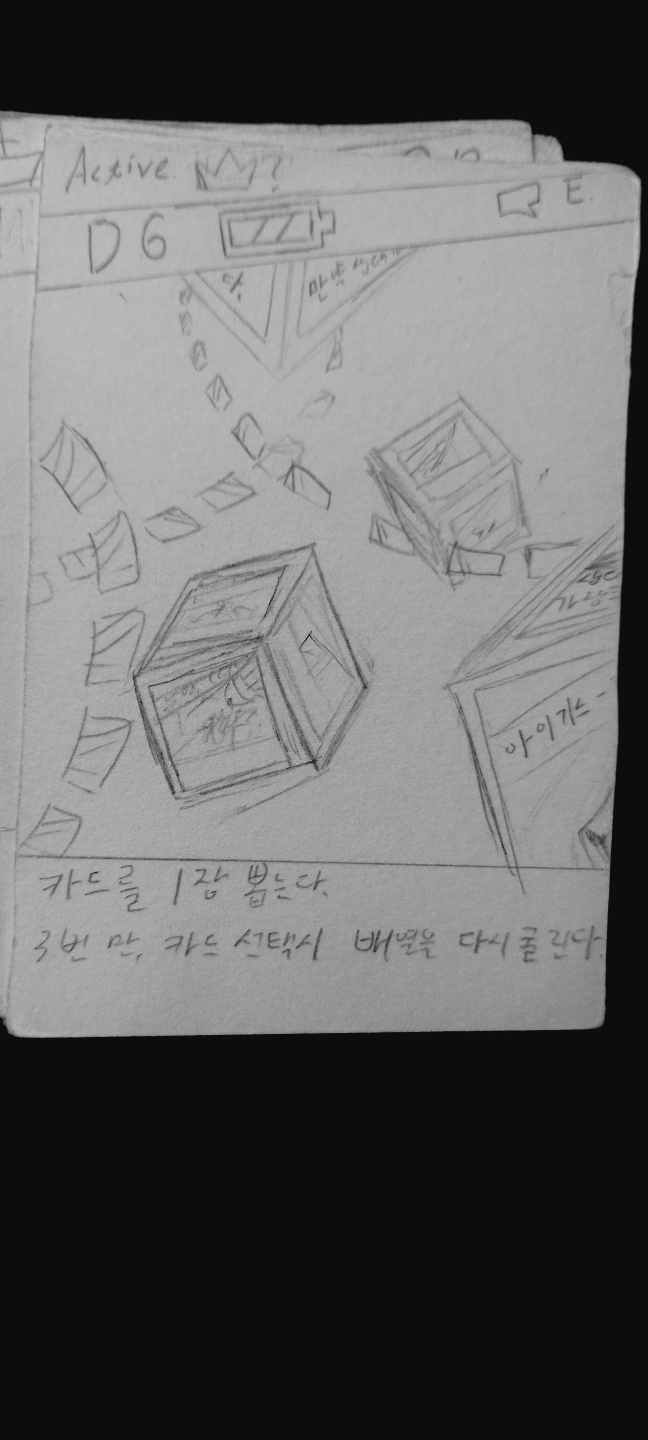 Active. ?
D6 E.
만약
아이기스-
카드를 1장 뽑는다.
3번 만, 카드 선택시 배열을 다시 굴린다.